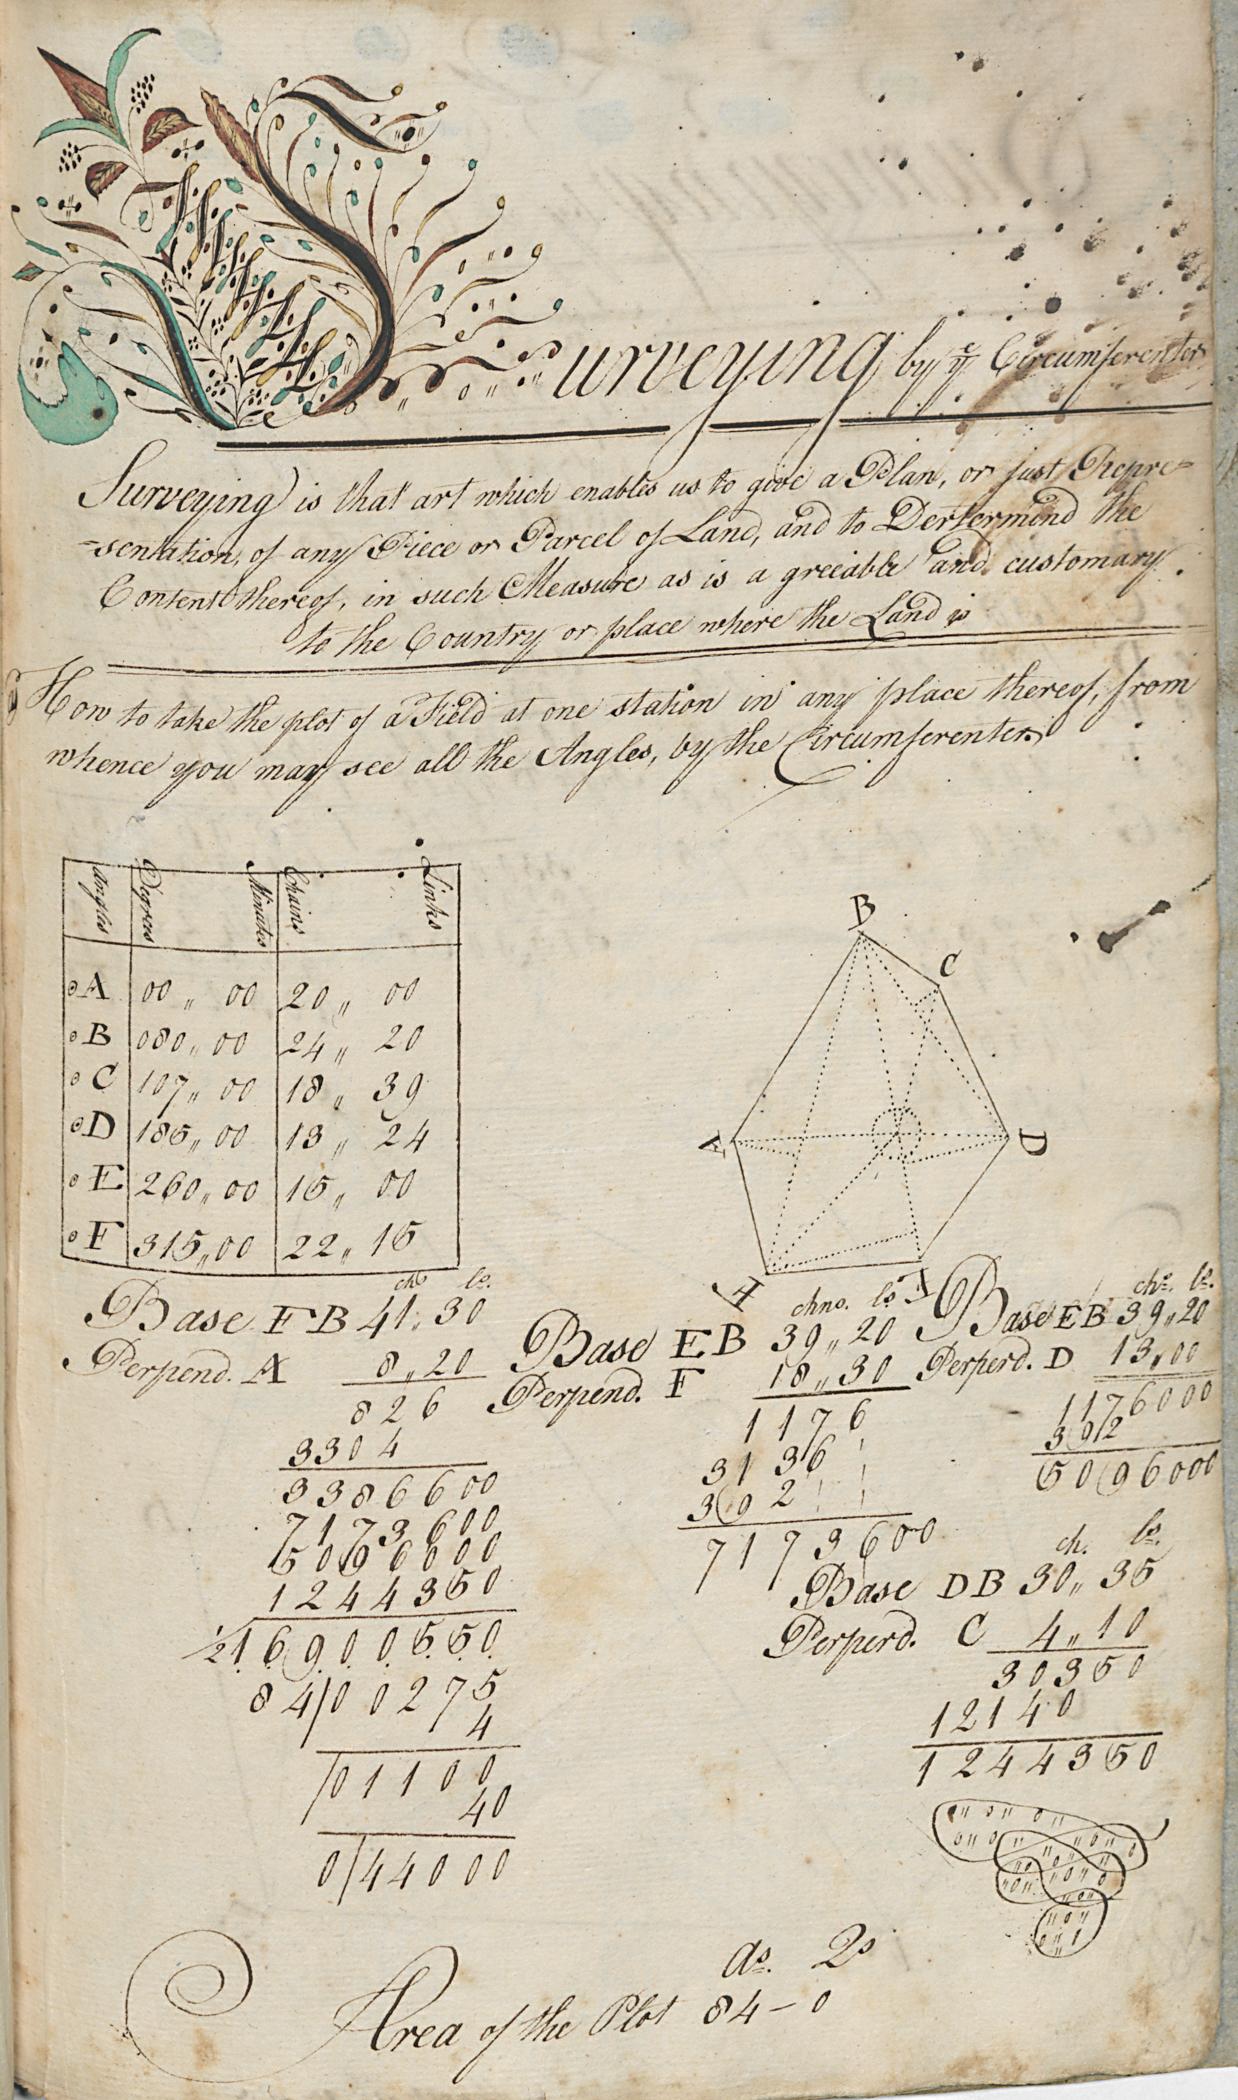 Surveying by ye Circumferenter
Surveying is that art which enables us to give a Plan, or just Repre=
=sentation, of any Piece or Parcel of Land, and to Dertermind the
Content thereof, in such Measure as is a greeable and customary
to the Country or place where the Land is
How to take the plot of a Field at one station in any place thereof, from
whence you may see all the Angles, by the Circumferenter
Angles Degrees Minutes Chains Links
A 00 " 00 20 " 00
B 080 " 00 24 " 20
C 107 " 00 18 " 39
D 185 " 00 13 " 24
E 260 " 00 15 " 00
F 315 " 00 22 " 15
B
C
A
D
chs. ls.
Base FB 41 " 30
Perpend. A 8 " 20
826
3304
3386600
7173600
5096000
1244350
1/2 16900550
84/00275
4
/01100
40
0/44000
chns. ls.
Base EB 39 " 20
Perpend. F 18 " 30
1176
3136
392
7173600
chs. ls.
Base EB 39 " 20
Perperd. D 13 " 00
1176000
392
5096000
ch. ls.
Base DB 30 " 35
Perperd. C 4 " 10
30350
12140
1244350
As. 2s
Area of the Plot 84 - 0